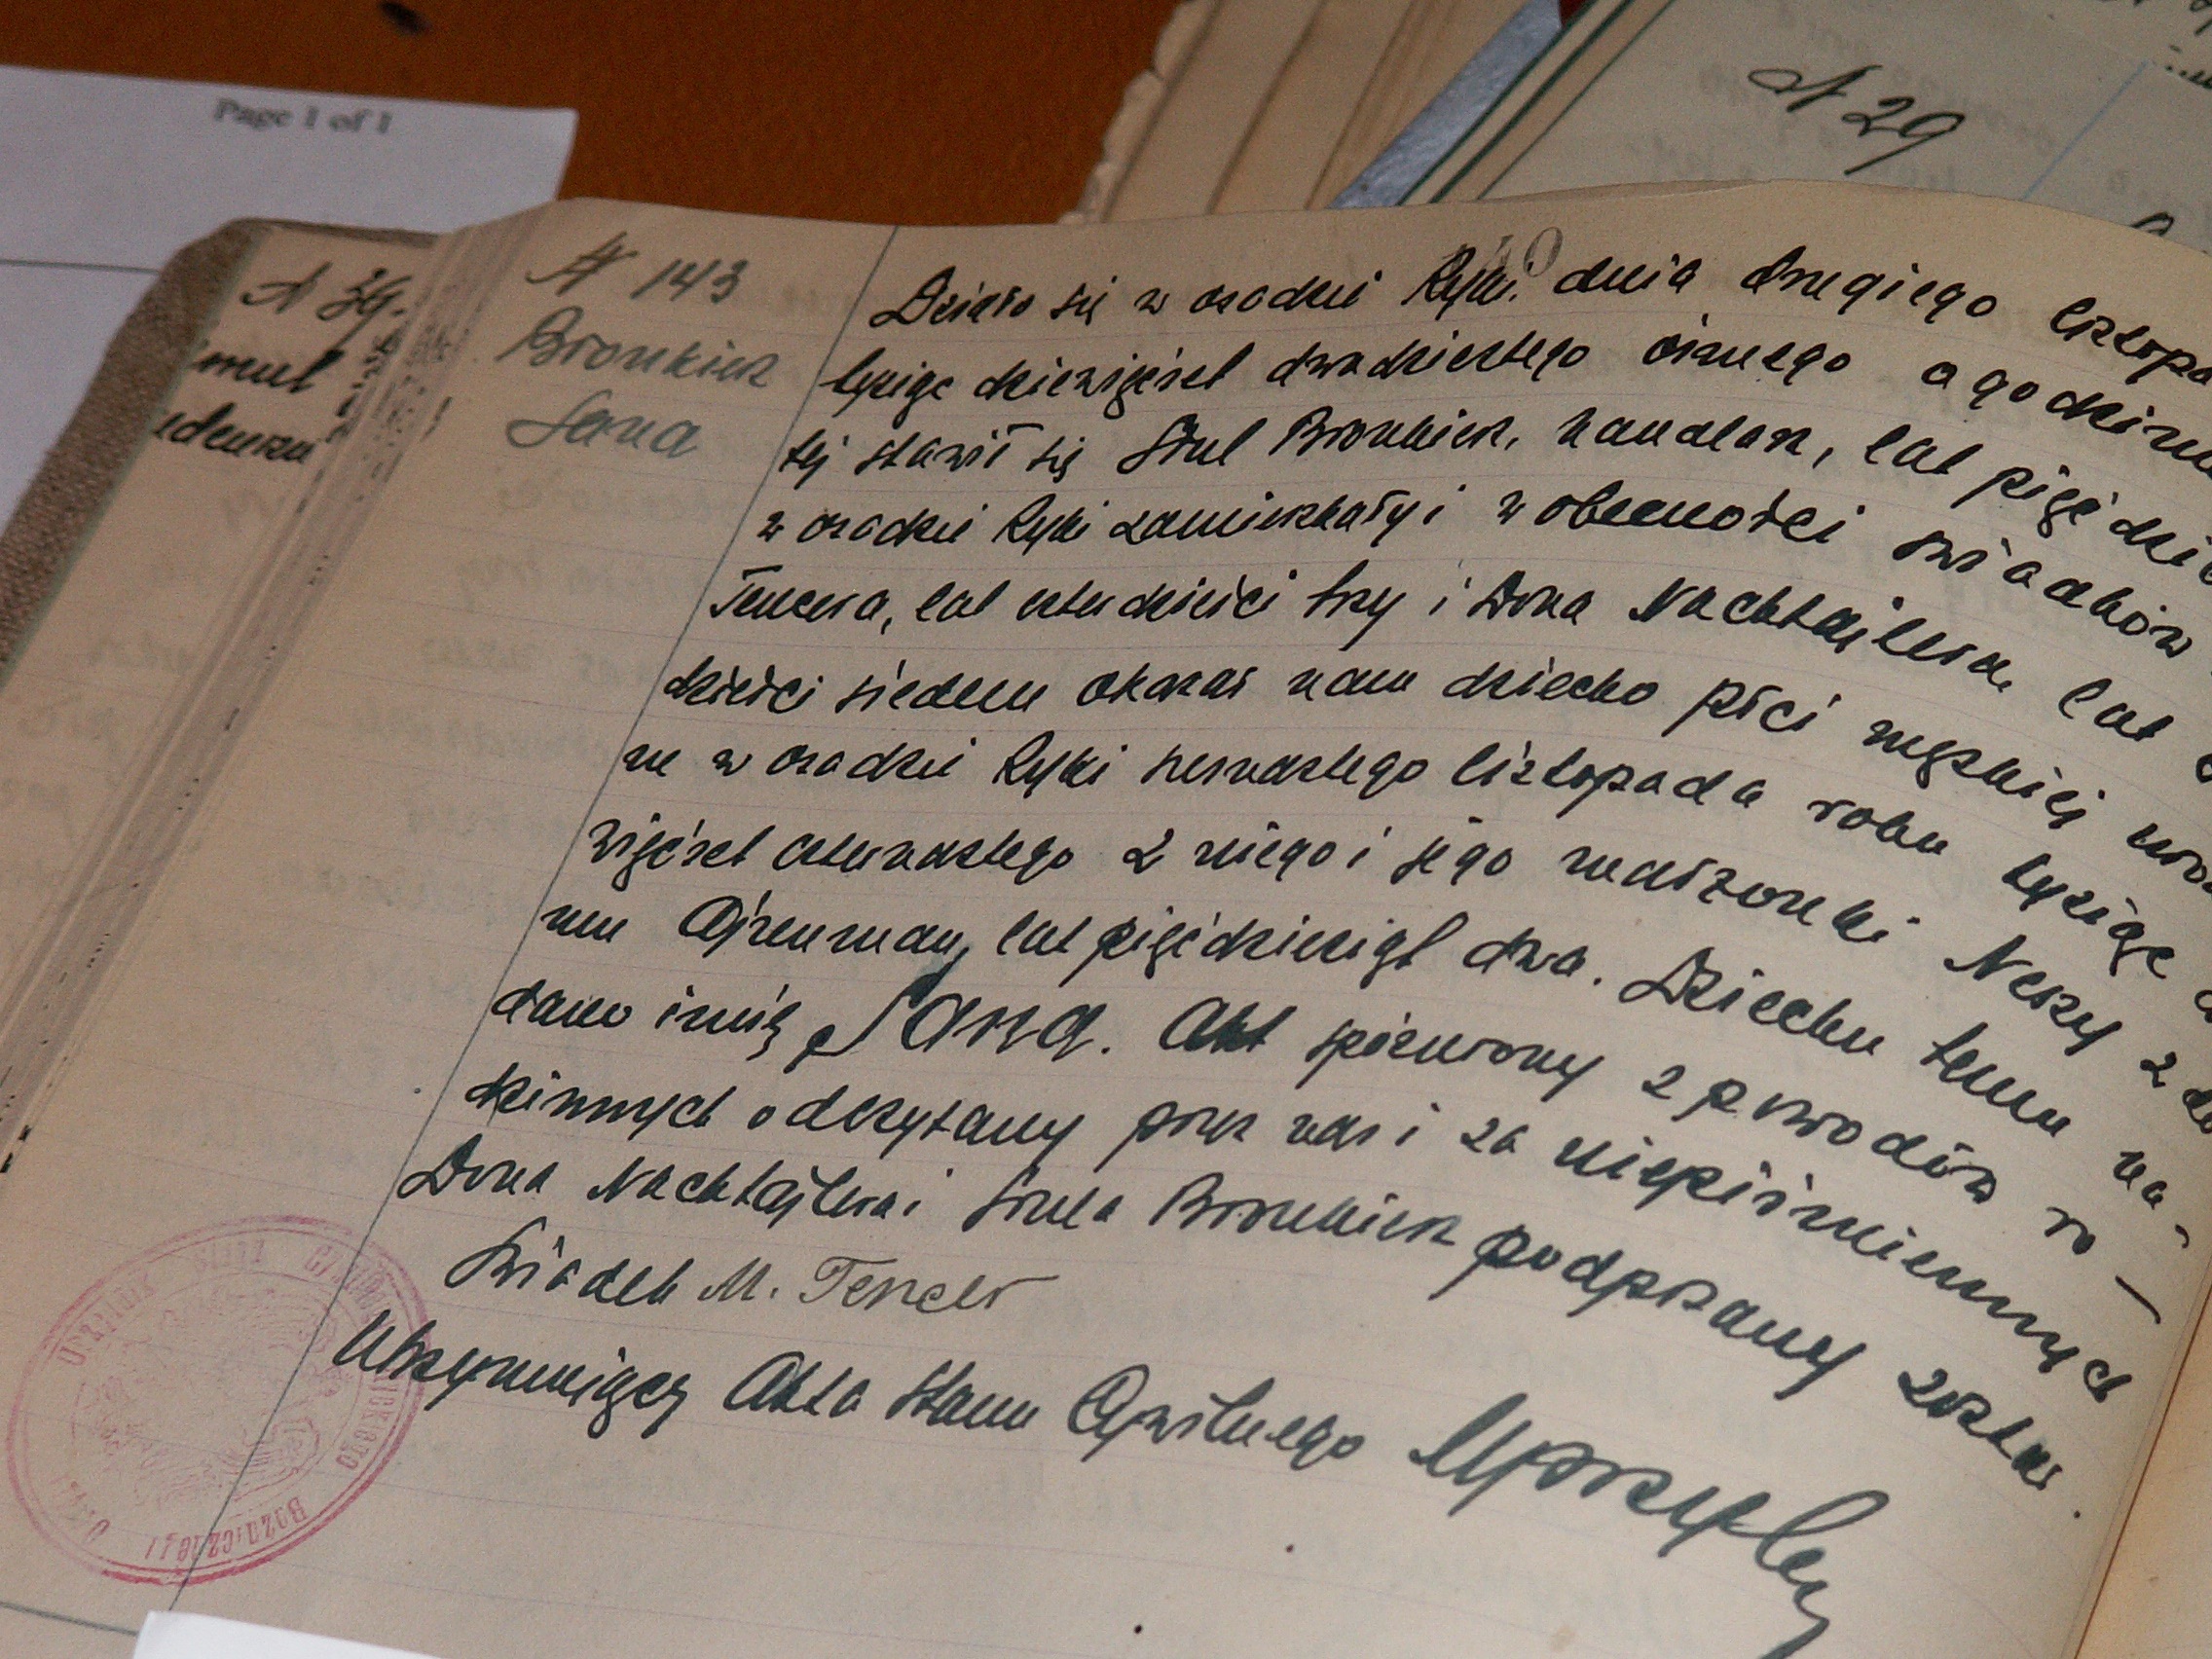 Page 1 of 1
N 29
N 39.
N 143
Bronkiew
Sana
Działo się w osadzie Ryki. dnia drugiego listopa
tysiąc dziewięćset dwudziestego ósmego o godzin
tej stawił się Srul Bronkiew, handlarz, lat pięćdzie
w osadzie Ryki zamieszkały i w obecności świadków
Tencera, lat czterdzieści trzy i Dona Nachtajlera, lat
dzieści siedem okazał nam dziecko płci męskiej uro
ne w osadzie Ryki pierwszego listopada roku tysiąc
więćset czternastego z niego i jego małżonki Neszy z do
mu Ajzenman, lat pięćdziesiąt dwa. Dziecku temu na-
dano imię Sana. Akt spóźniony z powodów ro-
dzinnych odczytany przez nas i za niepiśmiennych
Dona Nachtajlera i Srula Bronkiew podpisany został.
Świadek M. Tencer
Utrzymujący Akta Stanu Cywilnego
URZĘDNIK STANU CYWILNEGO